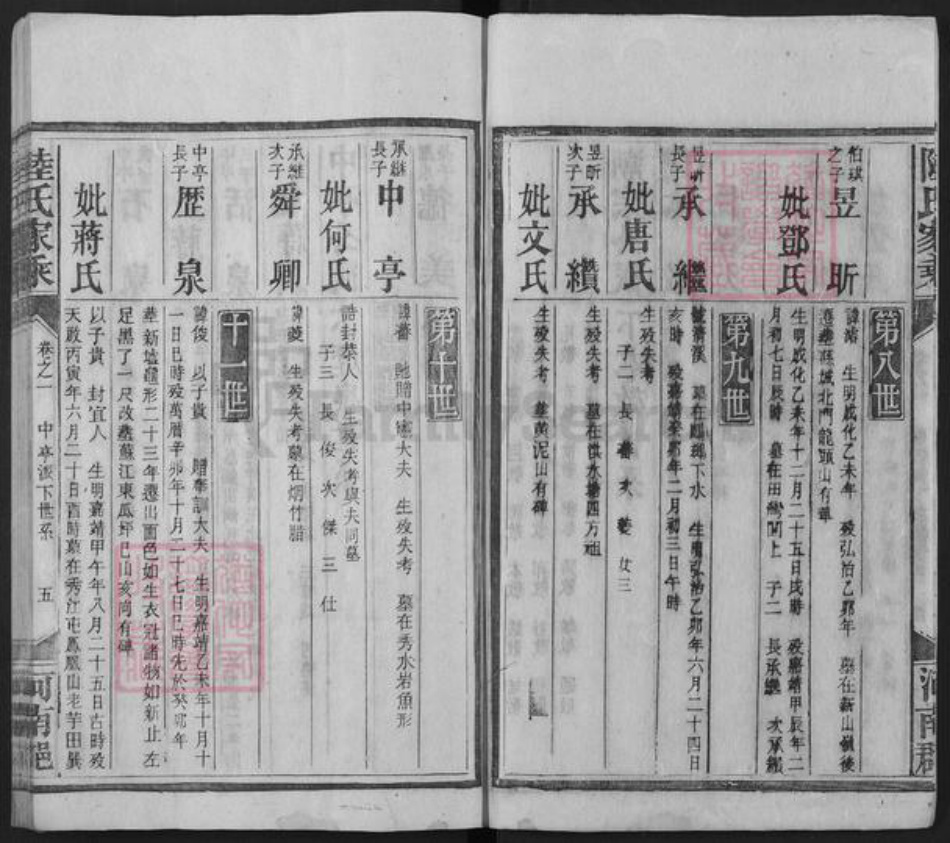 第八世
伯琪之子 昱昕
諱 生明成化乙未年 歿弘治乙卯年 墓在新山嶺後
縣城北門龍頭山有碑
妣鄧氏
生明成化乙未年十二月二十五日戌時 歿嘉靖甲辰年二
月初七日辰時 墓在田灣 上 子二 長承繼 次承纘
第九世
昱昕長子 承繼
號清溪 墓在 下水 生 弘治乙卯年六月二十四日
亥時 歿嘉靖 卯年二月初三日午時
妣唐氏
生歿失考
子二 長蕃 次 女三
昱昕次子 承纘
生歿失考 墓在洪水塘四方祖
妣文氏
生歿失考 葬黄泥山有碑
第十世
承繼長子 中亭
諱蕃 貤贈中憲大夫 生歿失考 墓在秀水岩魚形
妣何氏
誥封恭人 生歿失考與夫同墓
子三 長俊 次傑 三仕
承繼次子 舜卿
諱 生歿失考墓在烟竹腊
十一世
中亭長子 歷泉
諱俊 以子貴 贈奉訓大夫 生明嘉靖乙未年十月十
一日巳時歿萬曆辛卯年十月二十七日巳時先於癸卯年
葬新墟 形二十三年遷出面色如生衣冠諸物如新止左
足黑了一尺改葬蘇江東瓜坪巳山亥向有碑
妣蔣氏
以子貴 封宜人 生明嘉靖甲午年八月二十五日 時歿
天啟丙寅年六月二十日酉時墓在秀江屯鳳凰山老芋田巽
陸氏家乘
卷之一 中亭派下世系 五
河南
陸氏家乘
河南郡